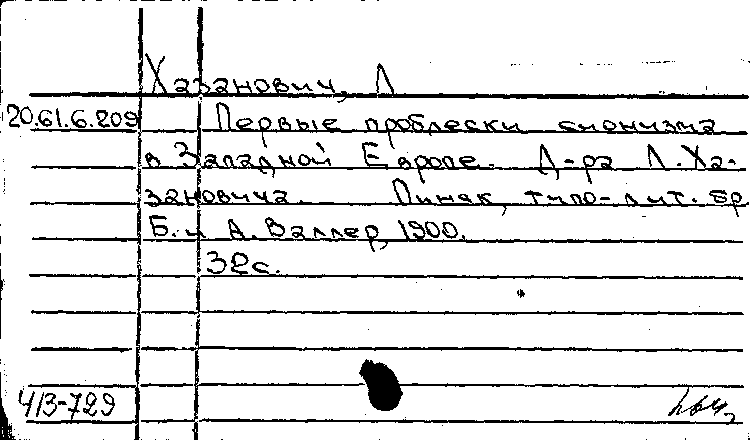 Хазанович, Л
20.61.6.209 Первые проблески сионизма
в Западной Европе. Д-ра Л. Ха-
зановича. Пинск, типо-лит. бр
Б. и А. Валлер, 1900.
32с.
413-729